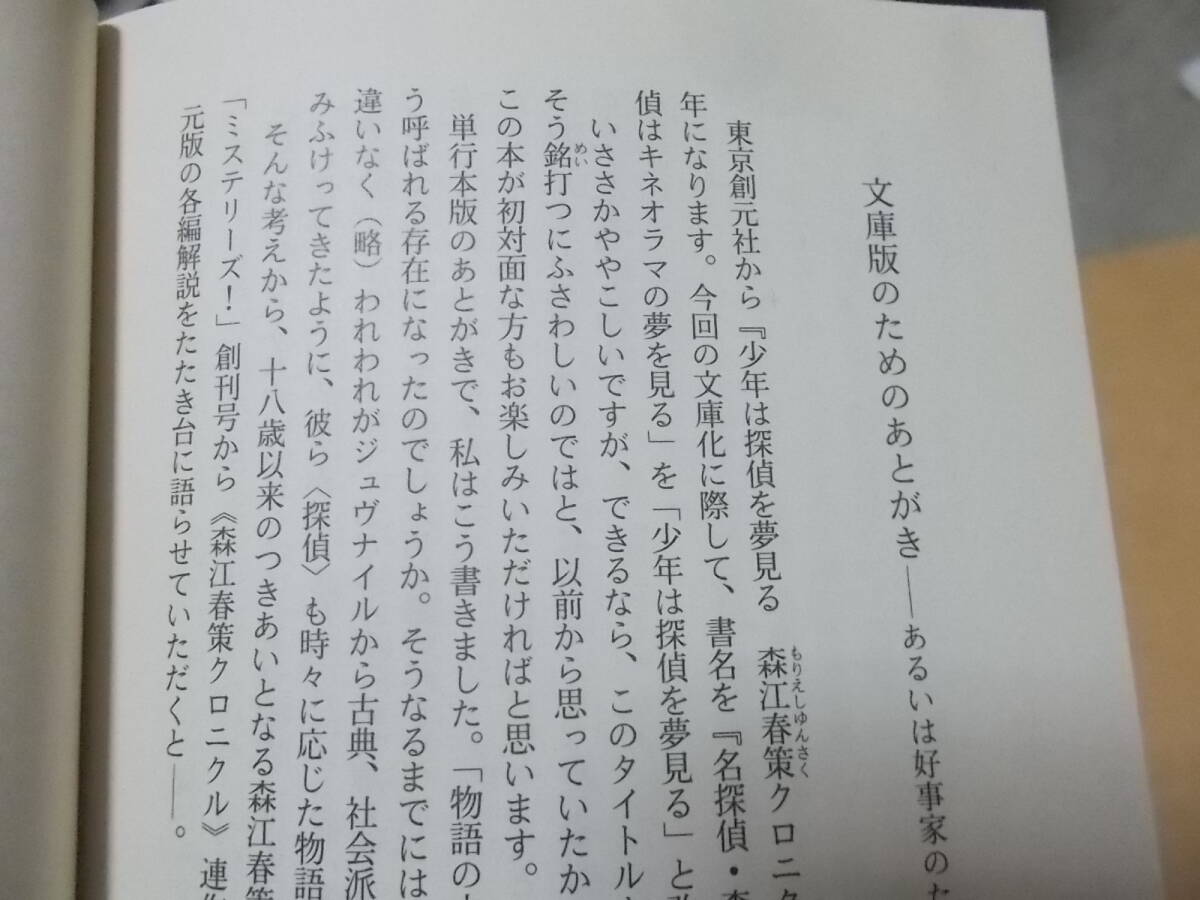 文庫版のためのあとがき――あるいは好事家のた
東京創元社から『少年は探偵を夢見る　森江春策クロニク
年になります。今回の文庫化に際して、書名を『名探偵・森
偵はキネオラマの夢を見る」を「少年は探偵を夢見る」と改
いささかややこしいですが、できるなら、このタイトル
そう銘打つにふさわしいのではと、以前から思っていたか
この本が初対面な方もお楽しみいただければと思います。
単行本版のあとがきで、私はこう書きました。「物語の
う呼ばれる存在になったのでしょうか。そうなるまでには
違いなく（略）われわれがジュヴナイルから古典、社会派
みふけってきたように、彼ら〈探偵〉も時々に応じた物語
そんな考えから、十八歳以来のつきあいとなる森江春策
「ミステリーズ！」創刊号から《森江春策クロニクル》連作
元版の各編解説をたたき台に語らせていただくと――。